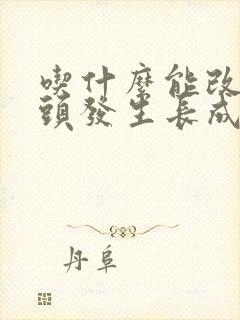 喫什麼能改
頭發生長成
丹阜